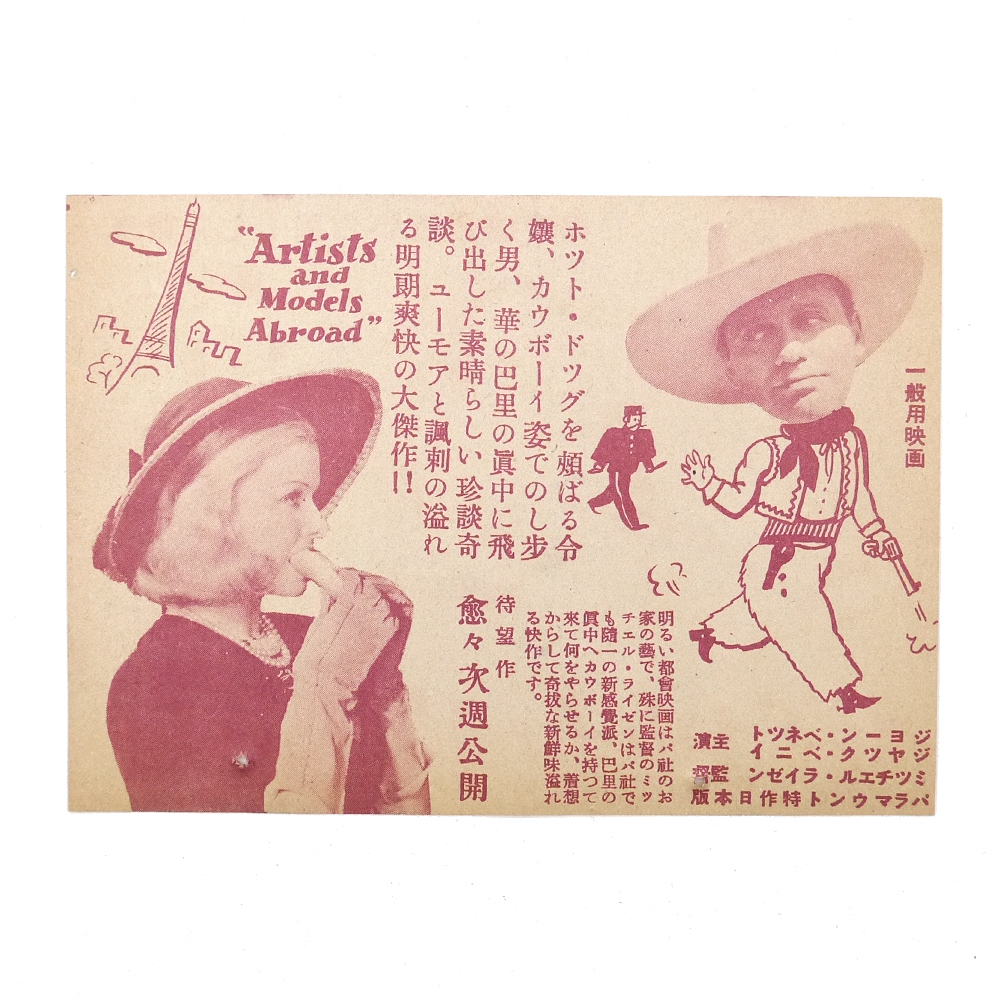 “Artists
and
Models
Abroad”
一般用映画
ホツト・ドツグを頰ばる令
孃、カウボーイ姿でのし步
く男、華の巴里の眞中に飛
び出した素晴らしい珍談奇
談。ユーモアと諷刺の溢れ
る明朗爽快の大傑作!!
明るい都會映画はパ社のお
家の藝で、殊に監督のミツ
チエル・ライゼンはパ社で
も隨一の新感覺派、巴里の
眞中へカウボーイを持つて
來て何をやらせるか、着想
からして奇拔な新鮮味溢れ
る快作です。
待望作
愈々次週公開
ジヨーン・ベネツト
ジヤツク・ベニイ
主演
ミツチエル・ライゼン 監督
パラマウント特作日本版